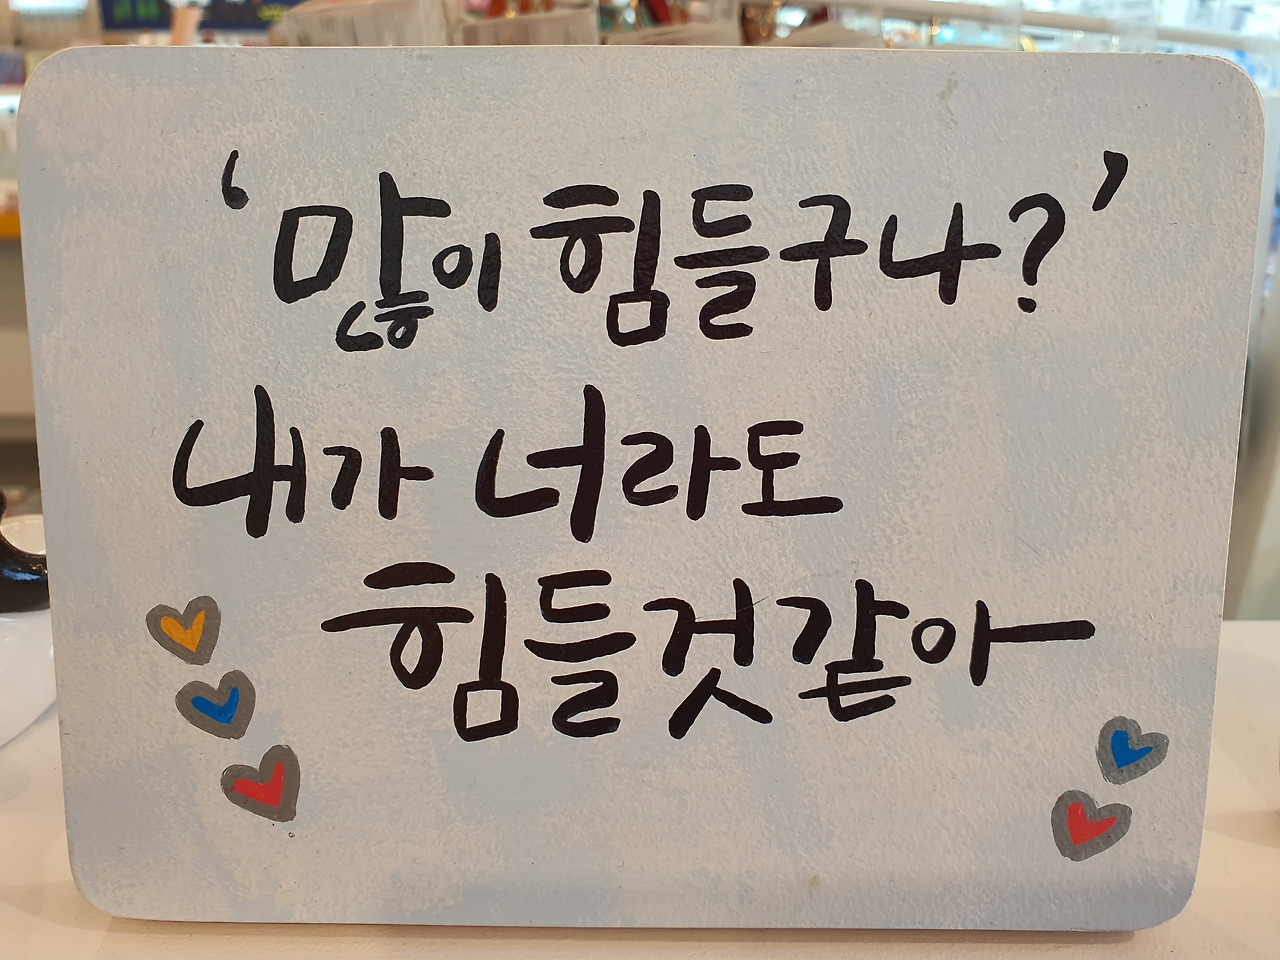 '많이 힘들구나?'
내가 너라도
힘들것같아